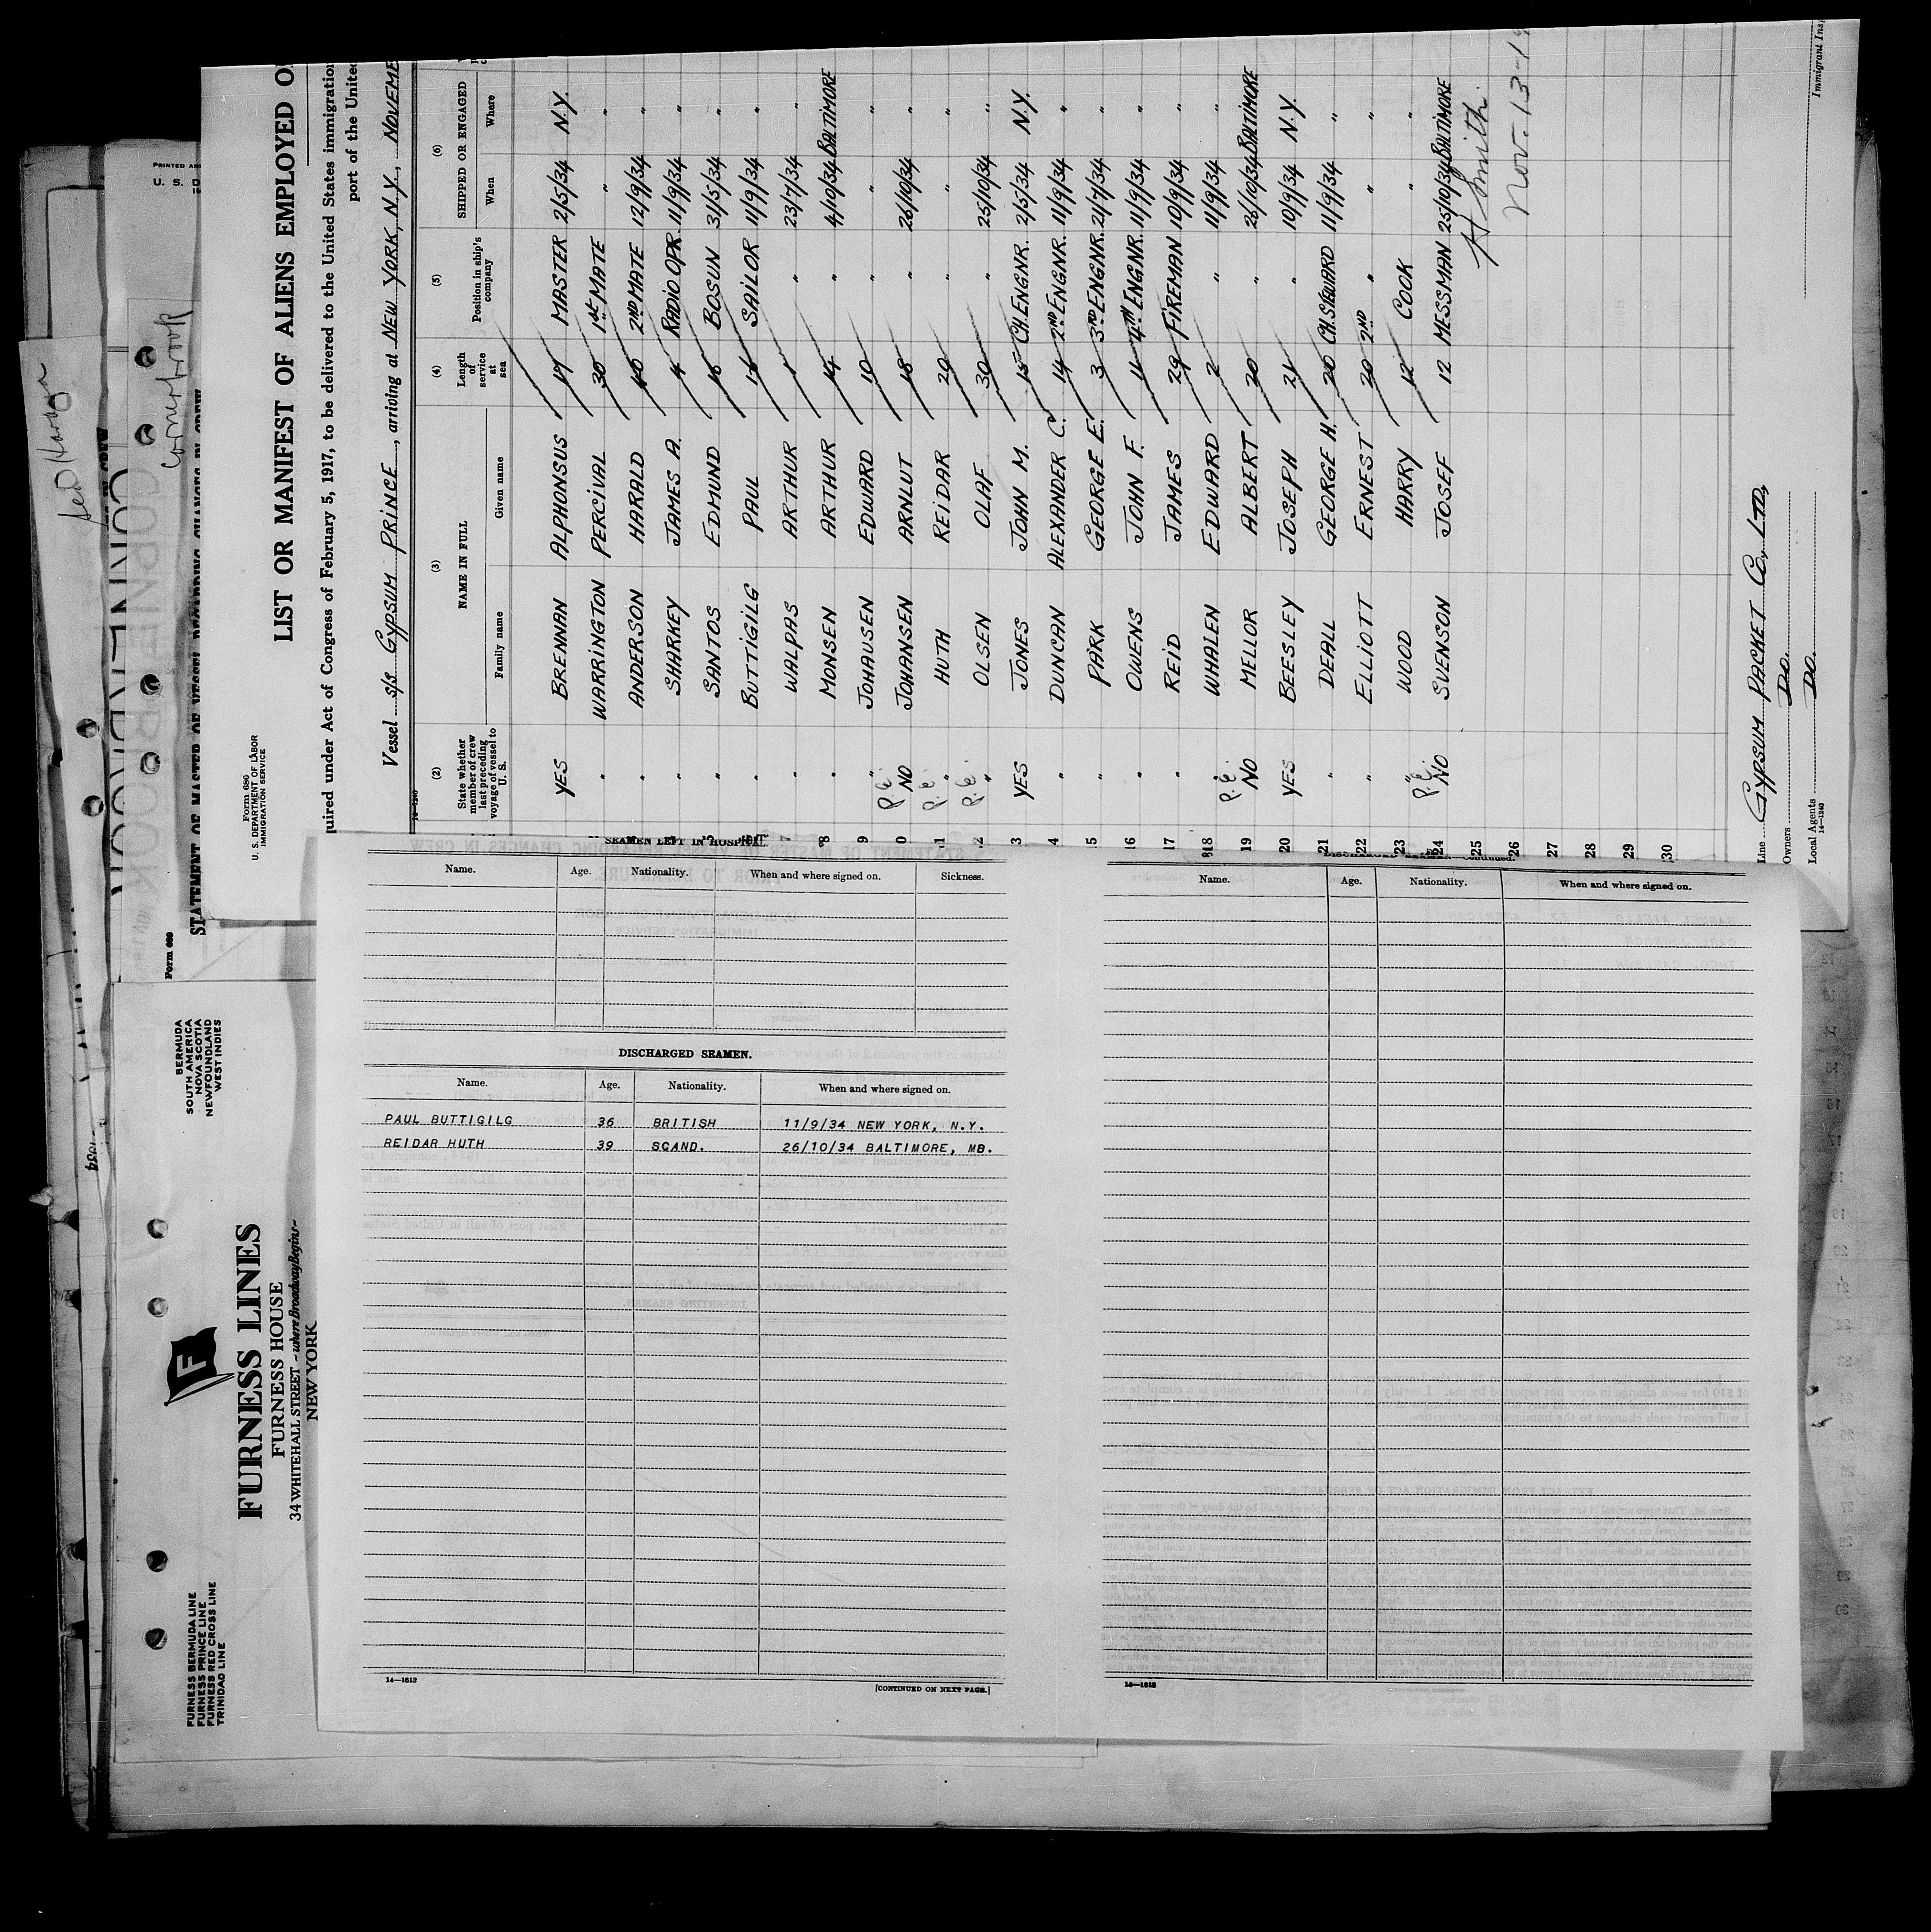 LIST OR MANIFEST OF ALIENS EMPLOYED
Form 680
U. S. DEPARTMENT OF LABOR
IMMIGRATION SERVICE
quired under Act of Congress of February 5, 1917, to be delivered to the United States immigration
port of the United
Vessel S/S GYPSUM PRINCE, arriving at NEW YORK, N.Y., NOVEME
(2) (3) (4) (5) (6)
State whether member of crew last preceding voyage of vessel to U. S. NAME IN FULL Length of service at sea Position in ship's company SHIPPED OR ENGAGED
Family name Given name When Where
YES BRENNAN ALPHONSUS 17 MASTER 2/5/34 N.Y.
" WARRINGTON PERCIVAL 30 1st MATE " "
" ANDERSON HARALD 40 2ND MATE 12/9/34 "
" SHARKEY JAMES A. 4 RADIO OPR. 11/9/34 "
5 " SANTOS EDMUND 16 BOSUN 31/5/34 "
" BUTTIGILG PAUL 16 SAILOR 11/9/34 "
7 " WALPAS ARTHUR 1 " 23/7/34 "
8 " MONSEN ARTHUR 14 " 4/10/34 BALTIMORE
9 " JOHAUSEN EDWARD 10 " " "
0 P.E. NO JOHANSEN ARNLUT 18 " 26/10/34 "
1 P.E. " HUTH REIDAR 20 " " "
2 P.E. " OLSEN OLAF 30 " 25/10/34 "
3 YES JONES JOHN M. 15 CH. ENGNR. 2/5/34 N.Y.
4 " DUNCAN ALEXANDER C. 14 2ND ENGNR. 11/9/34 "
5 " PARK GEORGE E. 3 3RD ENGNR. 21/7/34 "
16 " OWENS JOHN F. 11 4TH ENGNR. 11/9/34 "
17 " REID JAMES 29 FIREMAN 10/9/34 "
18 " WHALEN EDWARD 2 " 11/9/34 "
19 P.E. NO MELLOR ALBERT 20 " 26/10/34 BALTIMORE
20 YES BEESLEY JOSEPH 21 " 10/9/34 N.Y.
21 " DEALL GEORGE H. 20 CH. STEWARD 11/9/34 "
22 " ELLIOTT ERNEST 20 2ND " " "
23 " WOOD HARRY 12 COOK " "
24 P.E. NO SVENSON JOSEF 12 MESSMAN 25/10/34 BALTIMORE
25
26
27
28
29
30
H Smith
Nov. 13-19
Line GYPSUM PACKET Co, LTD,
Owners DO.
Local Agents DO.
14-1240
Immigrant Insp
SEAMEN LEFT IN HOSPITAL.
Name. Age. Nationality. When and where signed on. Sickness.
DISCHARGED SEAMEN.
Name. Age. Nationality. When and where signed on.
PAUL BUTTIGILG 36 BRITISH 11/9/34 NEW YORK, N.Y.
REIDAR HUTH 39 SCAND. 26/10/34 BALTIMORE, MB.
14—1613
[CONTINUED ON NEXT PAGE.]
DISCHARGED SEAMEN—Continued.
Name. Age. Nationality. When and where signed on.
14—1613
BERMUDA
SOUTH AMERICA
NOVA SCOTIA
NEWFOUNDLAND
WEST INDIES
F
FURNESS LINES
FURNESS HOUSE
34 WHITEHALL STREET - where Broadway Begins -
NEW YORK
FURNESS BERMUDA LINE
FURNESS PRINCE LINE
FURNESS RED CROSS LINE
TRINIDAD LINE
Form 680
STATEMENT OF MASTER OF VESSEL REGARDING CHANGES IN CREW
Cornerbrook